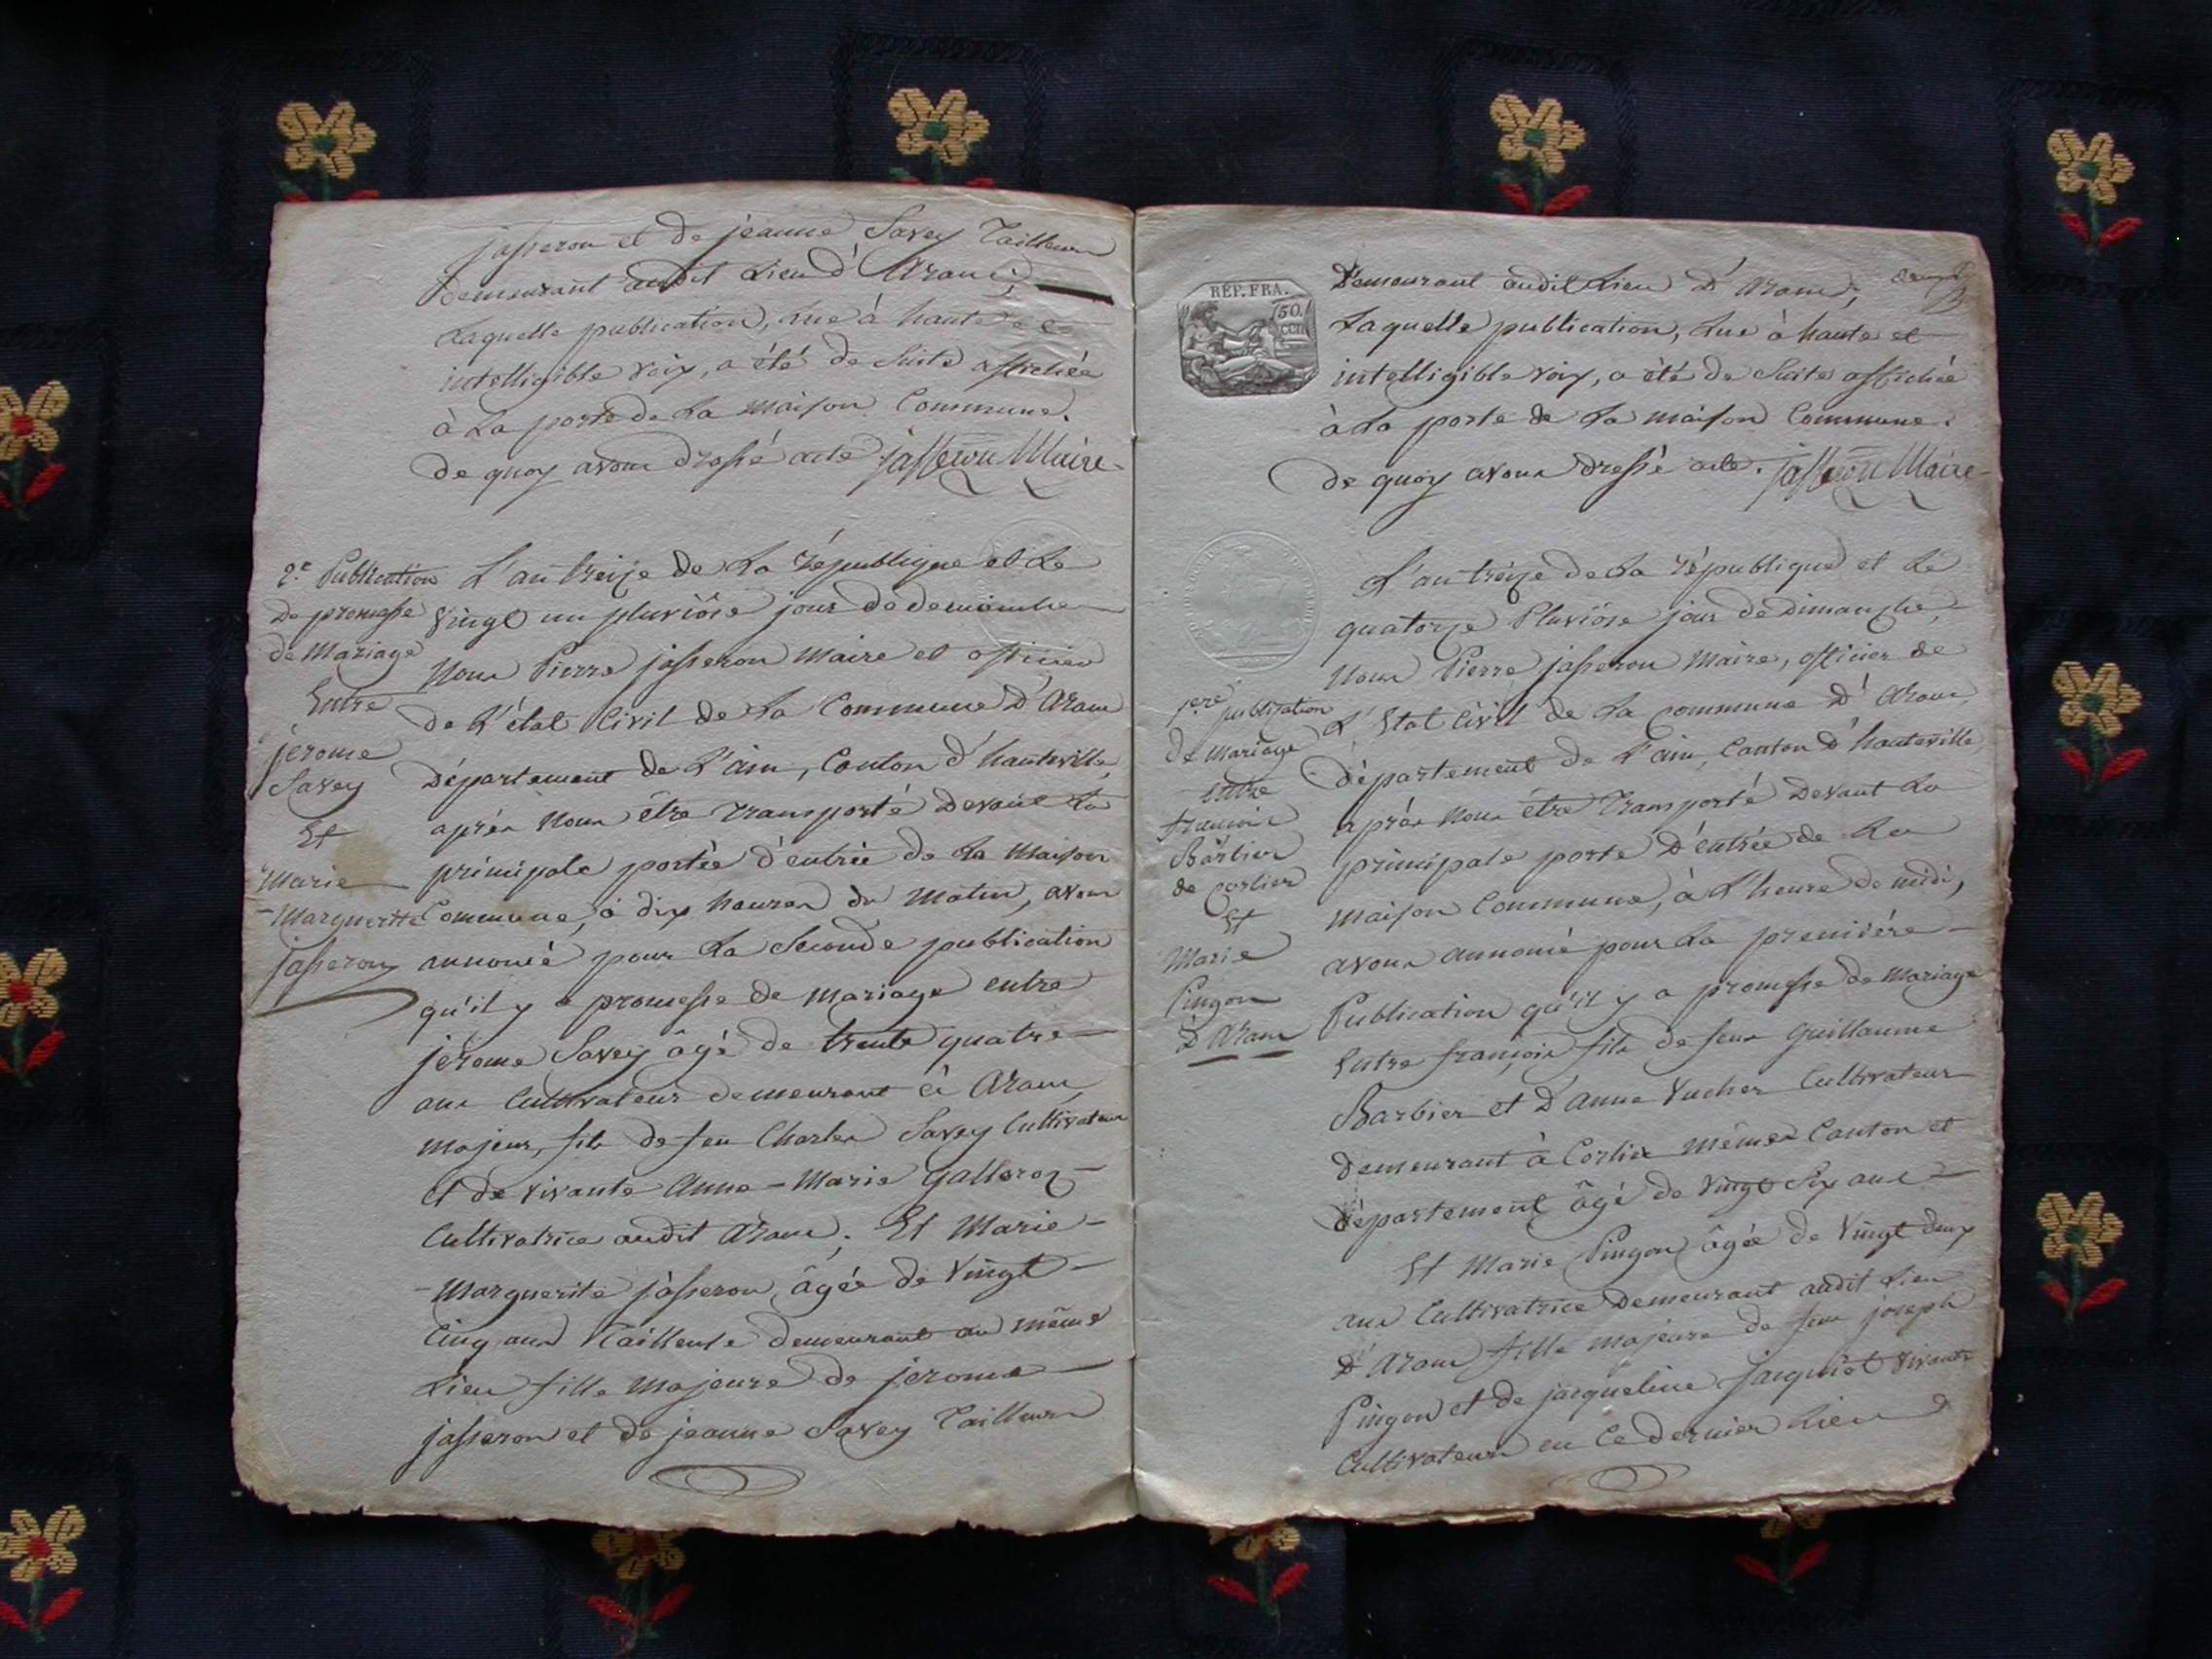 jasseron et de jeanne Savey Tailleurs
demeurant audit Lieu d'Aranc;
Laquelle publication, lue à haute et
intelligible voix, a été de suite affichée
à La porte de La maison Commune.
de quoy avons dressé acte jasseron Maire
2.e Publication
de promesse
de Mariage
Entre
jerome
Savey
Et
Marie
-Margueritte
jasseron
L'an treize de La république et Le
vingt un pluviôse jour de demimche
Nous Pierre jasseron Maire et officier
de L'état Civil de La Commune D'Aranc
Département de L'ain, Canton d'hauteville,
après Nous être transporté devant La
principale portée d'entrée de La Maison
Commune, à dix heures du Matin, avons
annoncé pour La Seconde publication
qu'il y a promesse de Mariage entre
jerome Savey âgé de trente quatre
ans Cultivateur demeurant à Aranc
majeur, fils de feu Charles Savey Cultivateur
et de vivante Anne-Marie Galleroz
Cultivatrice audit Aranc; Et Marie-
-Marguerite jasseron, âgée de Vingt
Cinq ans Tailleuse demeurant au même
Lieu fille Majeure de jerome
jasseron et de jeanne Savey Tailleurs
REP. FRA.
50.
CEN
Demeurant audit Lieu D'Aranc;
Laquelle publication, Lue à haute et
intelligible voix, a été de Suite affichée
à La porte de La maison Commune.
De quoy avons dressé acte. jasseron Maire
1.ere publication
de Mariage
entre
francois
Barbier
de Corlier
Et
Marie
Pingon
d'Aranc
L'an treize de La république et Le
quatorze Pluviôse jour de Dimanche,
Nous Pierre jasseron Maire, officier de
L'Etat Civil de La commune D'Aranc,
Département de L'ain, Canton D'hauteville,
après Nous être transporté Devant La
principale porte D'entrée de La
maison Commune, à L'heure de midi,
avons annoncé pour La première
Publication qu'il y a promesse de Mariage
Entre françois fils de feu Guillaume
Barbier et D'anne Vucher Cultivateur
Demeurant à Corlier mêmes Canton et
Département âgé de Vingt Six ans
Et Marie Pingon âgée de Vingt deux
ans Cultivatrice Demeurant audit Lieu
D'Aranc fille majeure de feu joseph
Pingon et de jacqueline jacquiot vivante
Cultivateurs en Ce dernier Lieu